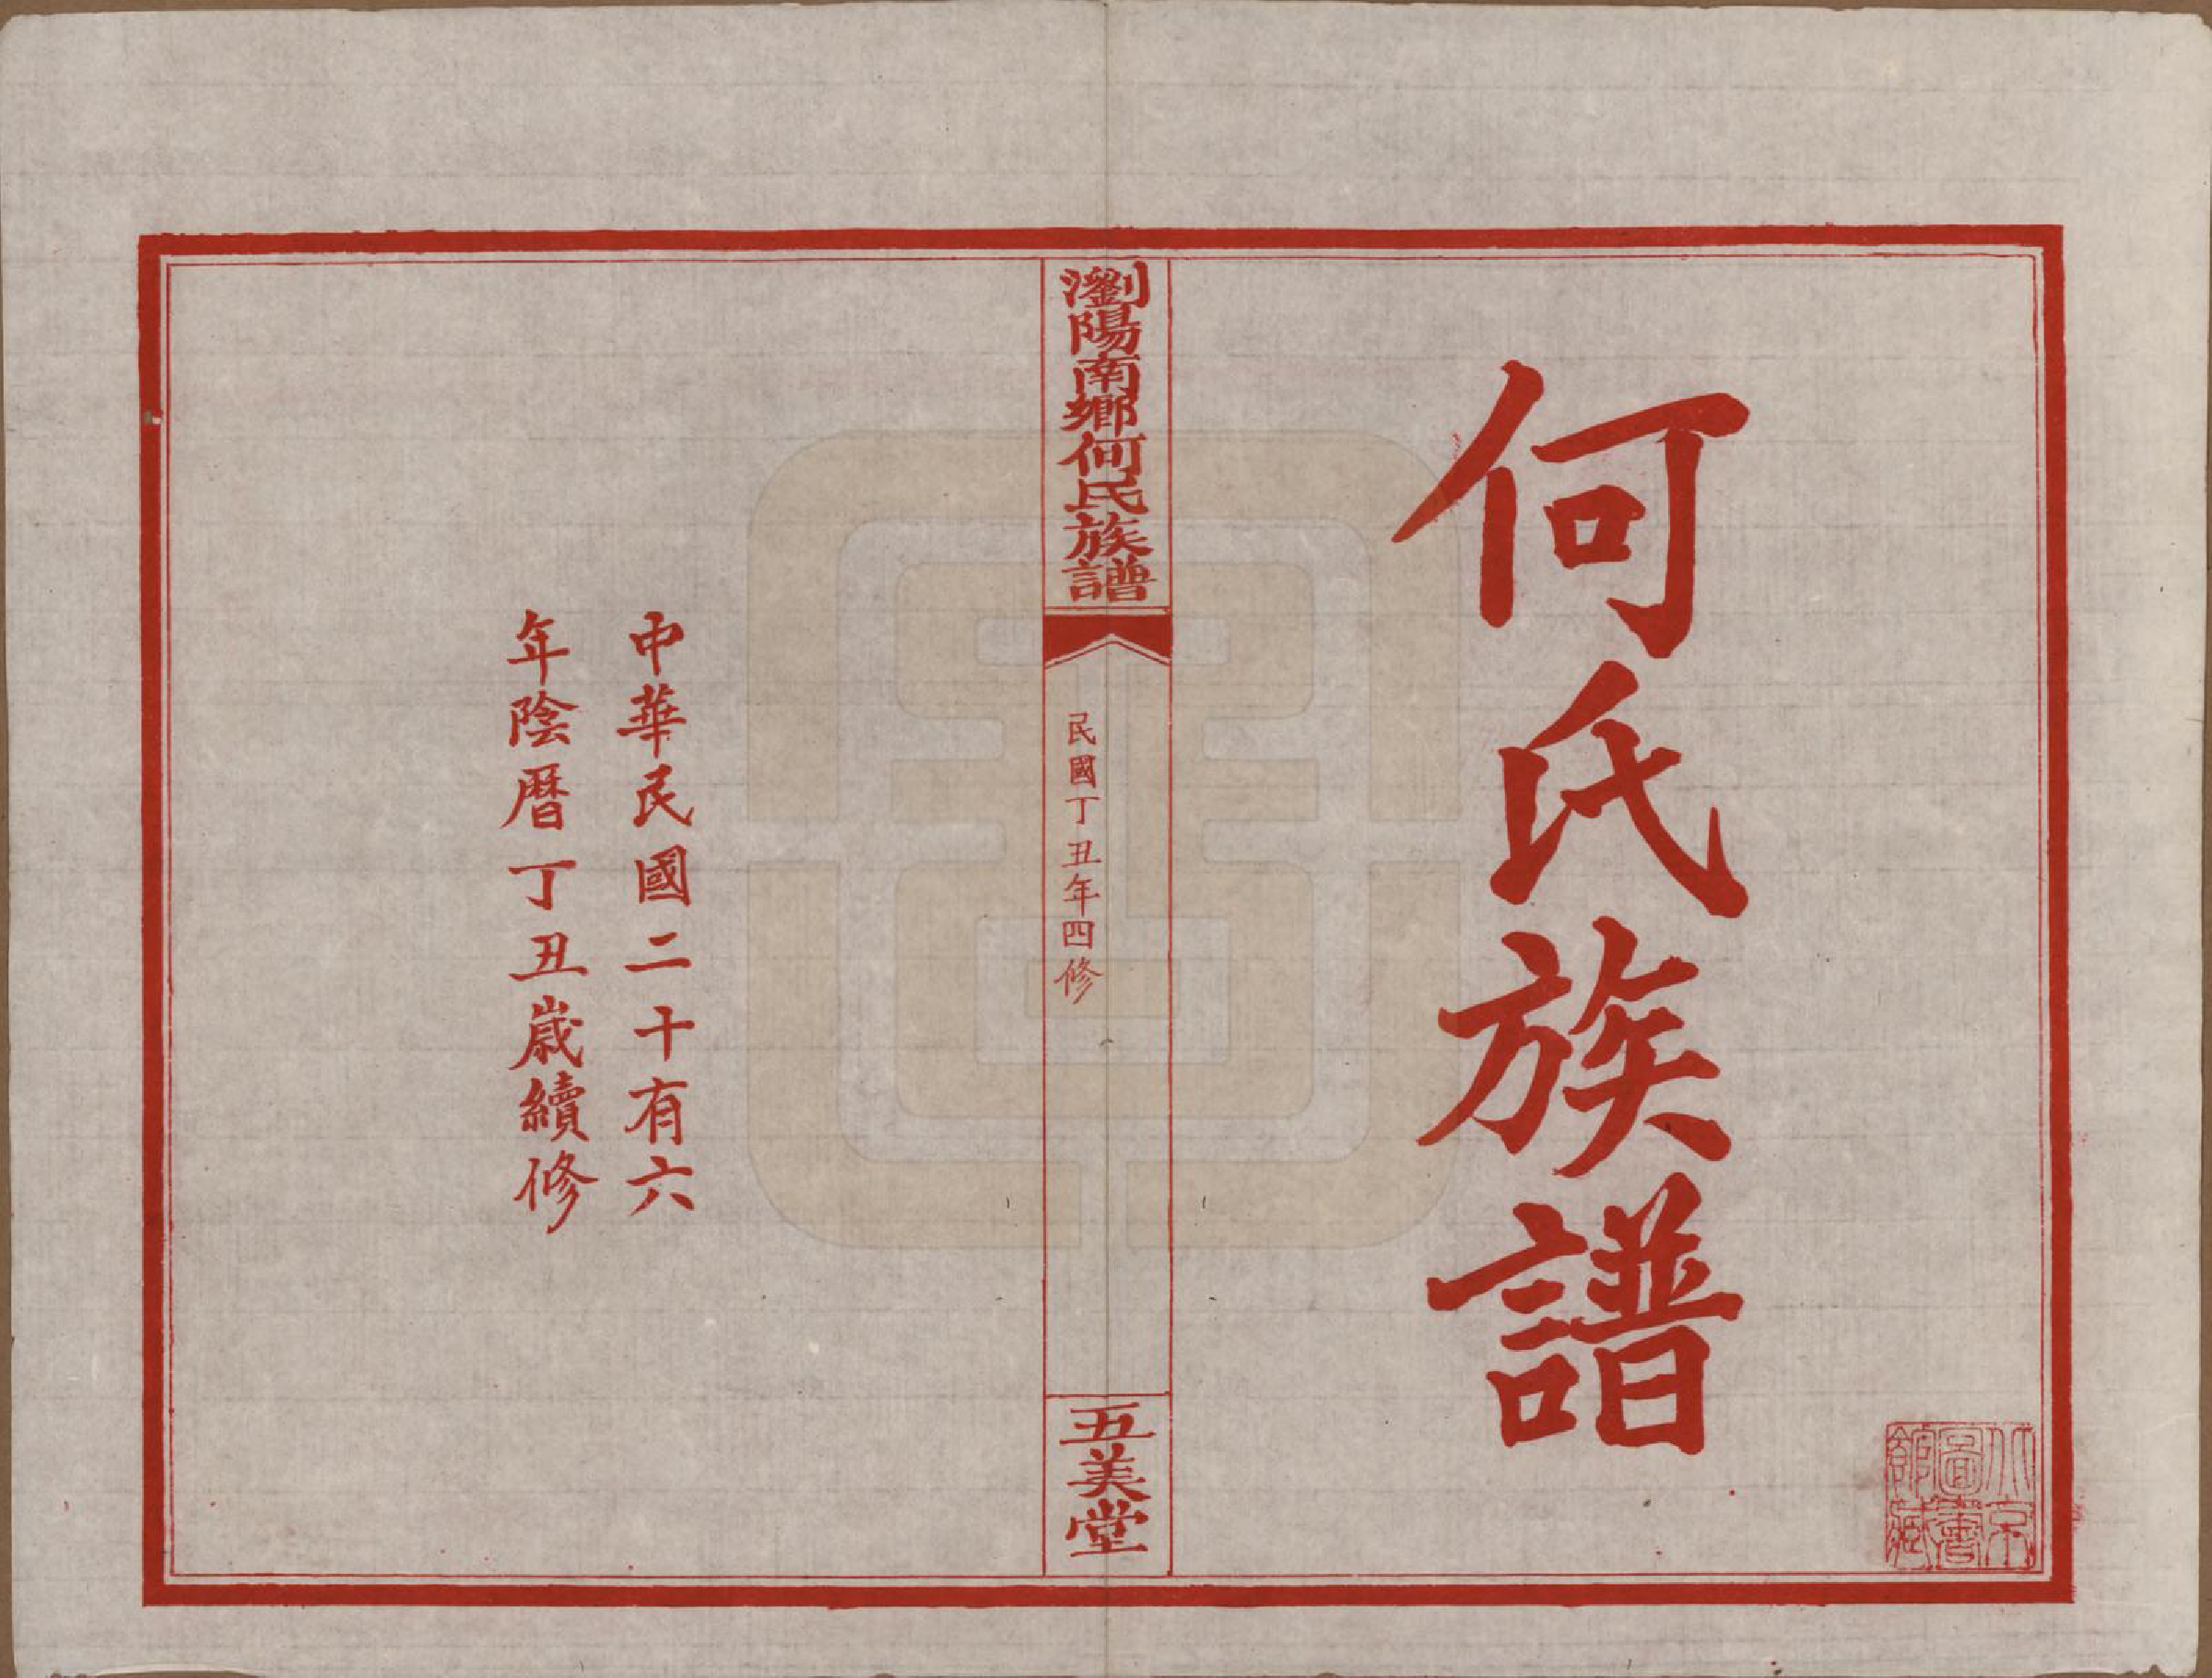 何氏族譜
北京
圖書
館藏
瀏陽南鄉何氏族譜
民國丁丑年四修
五美堂
中華民國二十有六
年陰曆丁丑歲續修